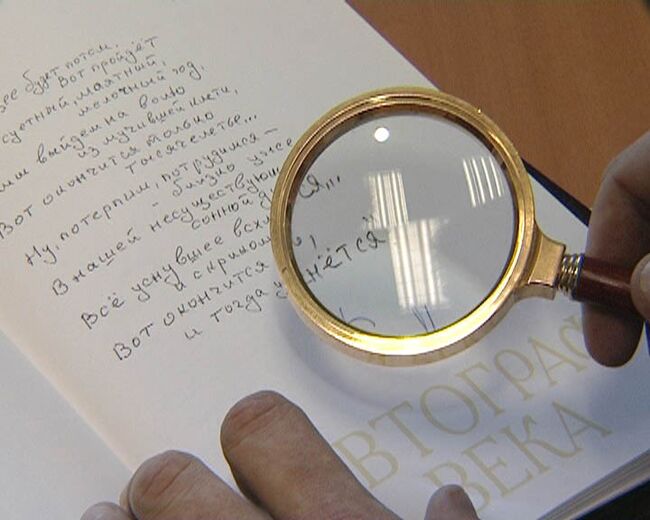 все будет потом.
Вот пройдёт
суетный, маятный,
молочный год.
выйдем на волю
из мучившей клети,
Вот окончится только
тысячелетье...
Ну, потерпим, потрудимся -
- близко уже
В нашей несуществующ
сонной
Всё уснувшее
и с
Вот окончится
и тогда нётся"
ВТОГРАФ
ВЕКА